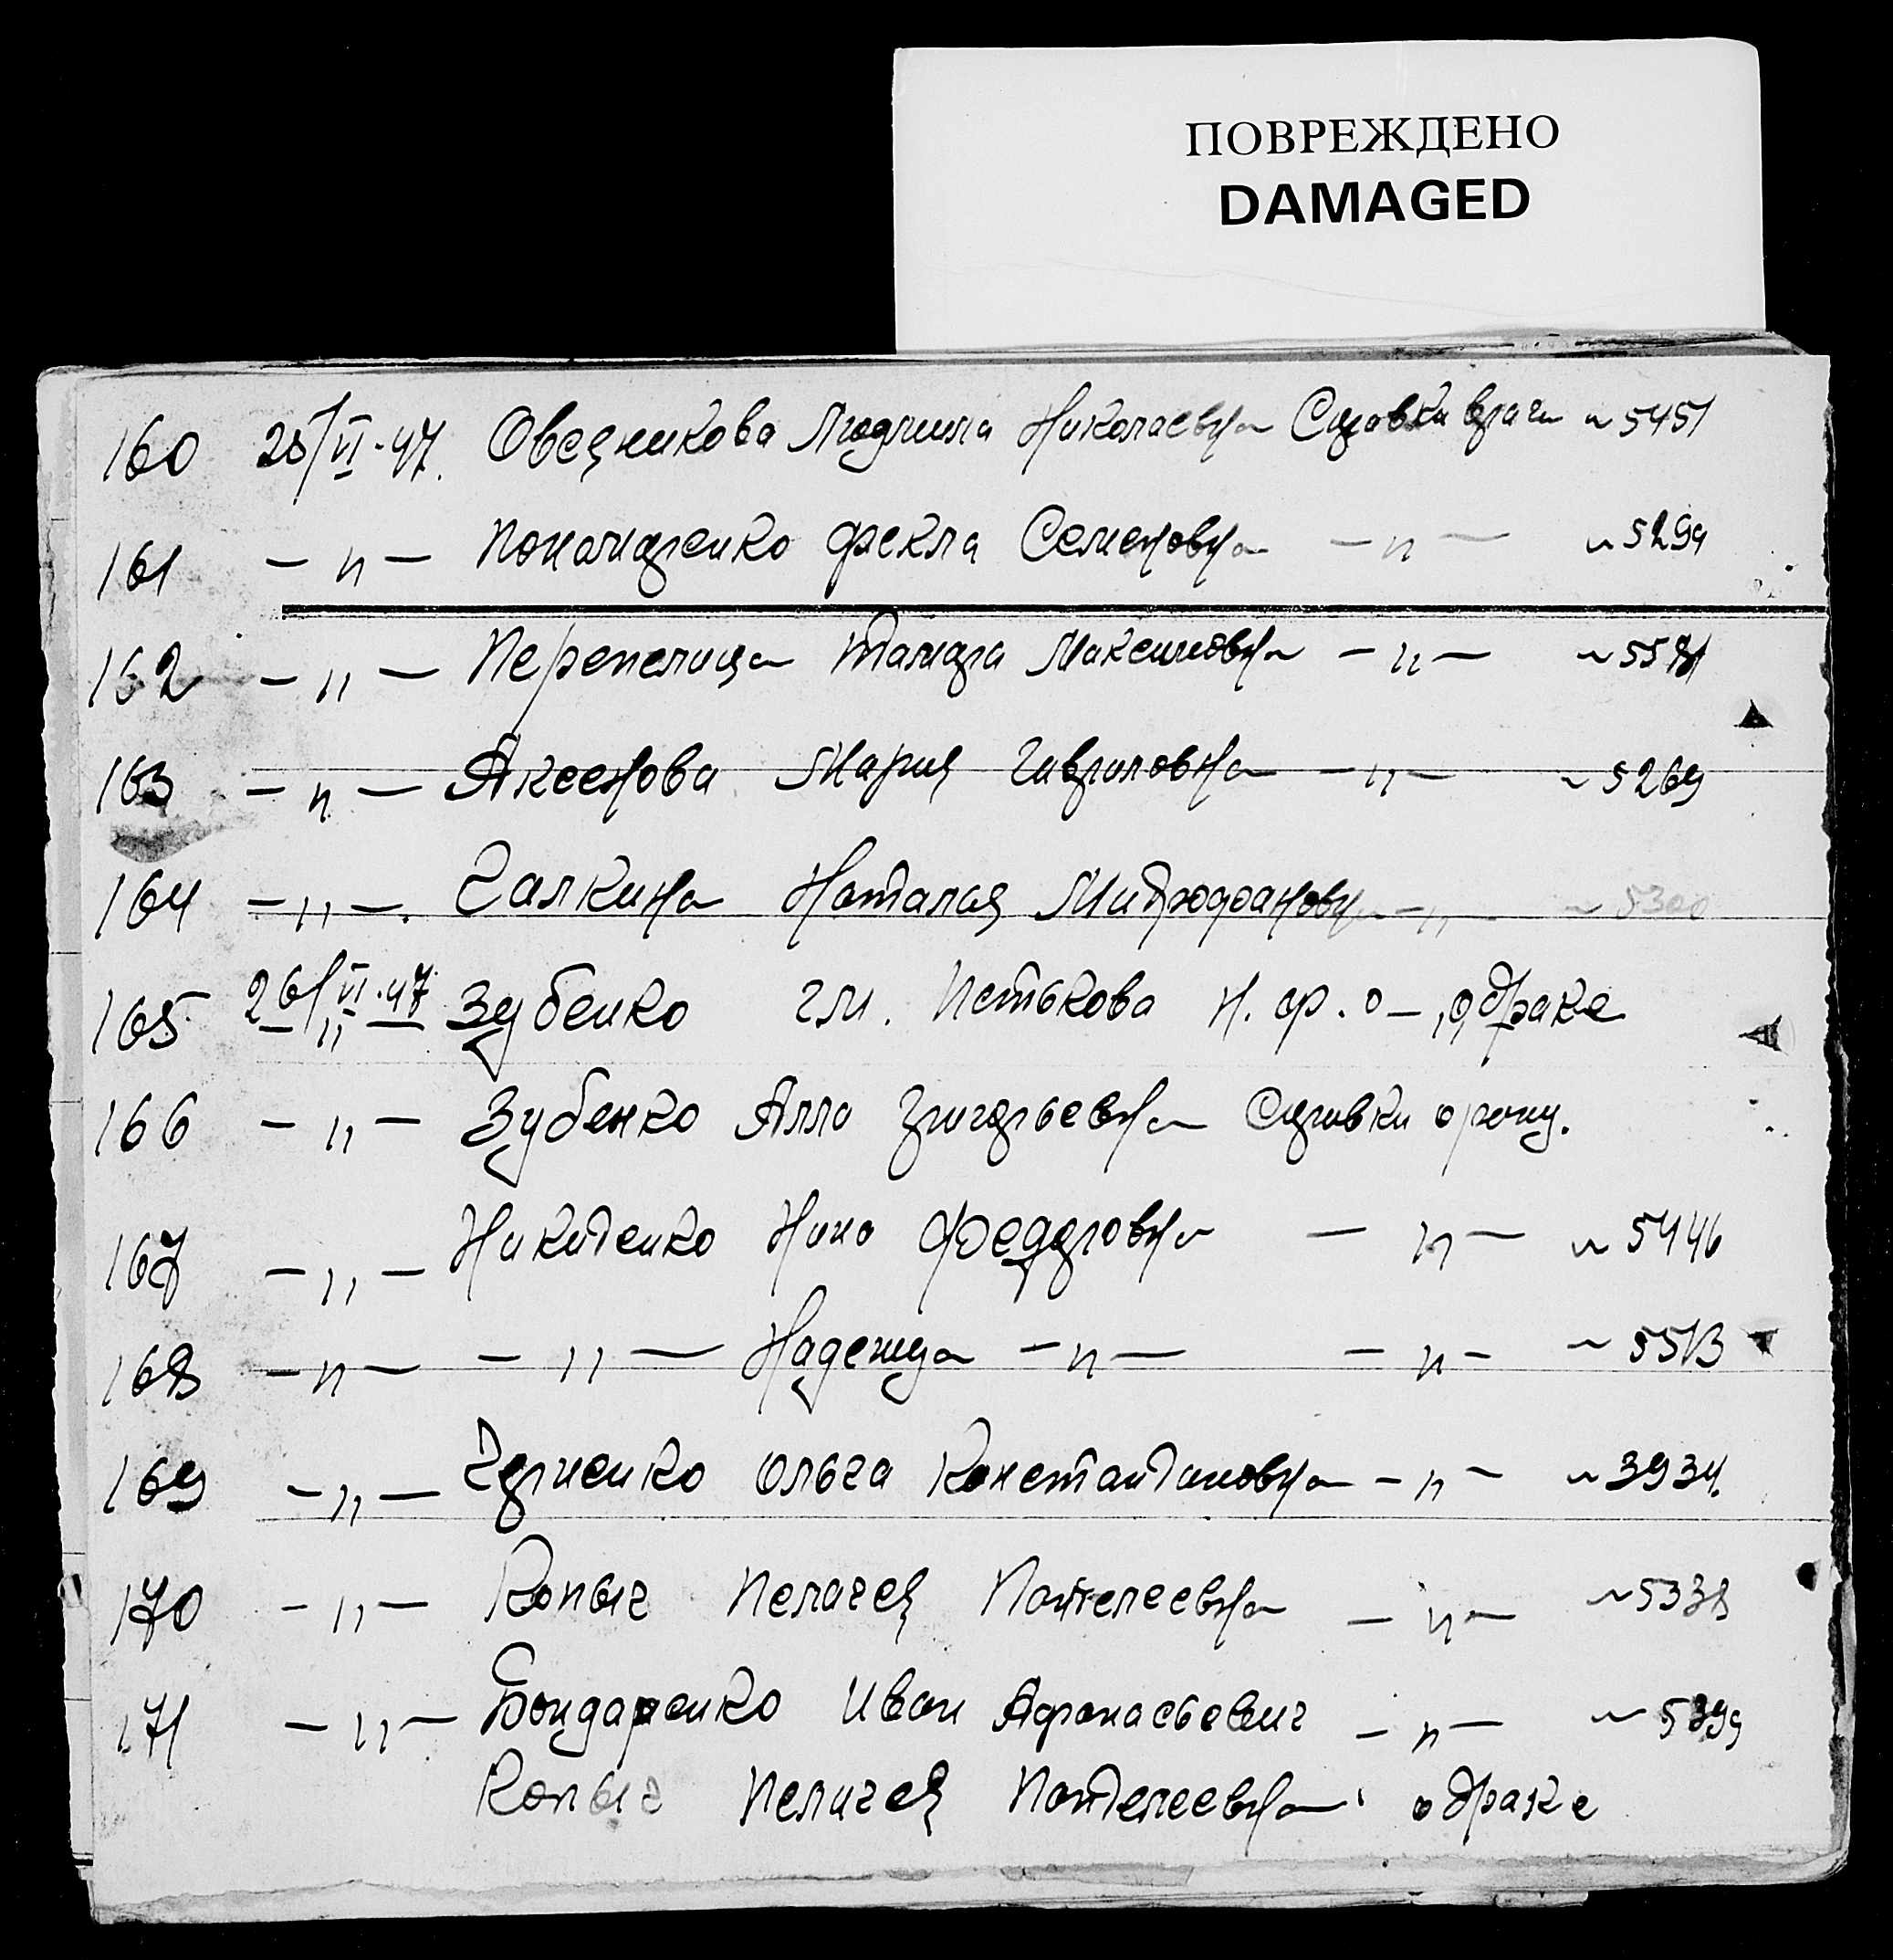 ПОВРЕЖДЕНО
DAMAGED
160 25/VI-47. Овечникова Людмила Николаевна Справка врача ~ 5451
161 — " — Пономаренко Фекла Семеновна — " — ~ 5294
162 — " — Перепелица Тамара Максимовна — " — ~ 5581
163 — " — Аксенова Мария Гавриловна — " — ~ 5269
164 — " —. Галкина Наталия Митрофановна — " — ~ 5300
165 26/VI-47 — " — Зубенко гм. Петькова Н. ф. о браке
166 — " — Зубенко Алла Григорьевна Справки
167 — " — Никитенко Нина Федоровна — " — ~ 5446
168 — " — — " — Надежда — " — — " — ~ 5513
169 — " — Черненко Ольга Константиновна — " — ~ 3934.
170 — " — Копыч Пелагея Пантелеевна — " — ~ 5338
171 — " — Бондаренко Иван Афанасьевич — " — ~ 5399
Копыч Пелагея Пантелеевна о браке